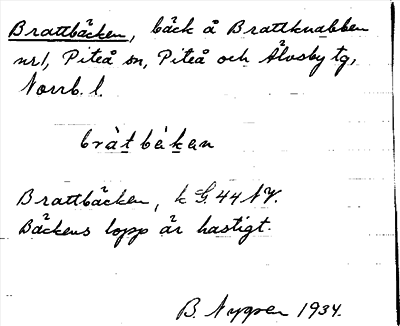 Brattbäcken, bäck å Brattknabben
nr1, Piteå sn, Piteå och Älvsby tg,
Norrb. l.
bràtbèkan
Brattbäcken, k G.44 NV.
Bäckens lopp är hastigt.
B. Nygren 1934.